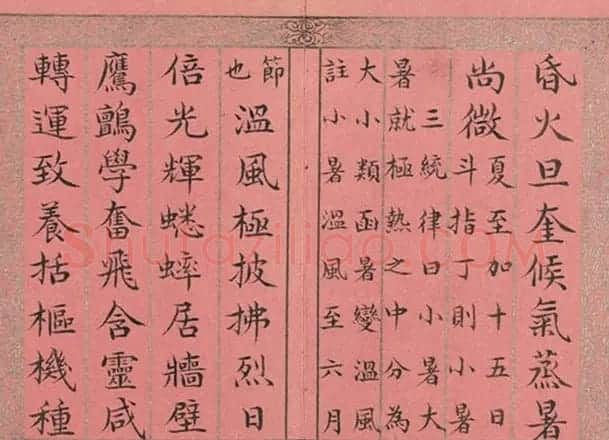 昏火旦奎候氣蒸暑
尚微夏至加十五日
斗指丁則小暑
三統律曰小暑大
暑就極熱之中分為
大小類函暑變溫風
註小暑溫風至六月
節
也
溫風極披拂烈日
倍光輝蟋蟀居牆壁
鷹鸇學奮飛含靈咸
轉運致養括樞機種
Shufaziliao.COM